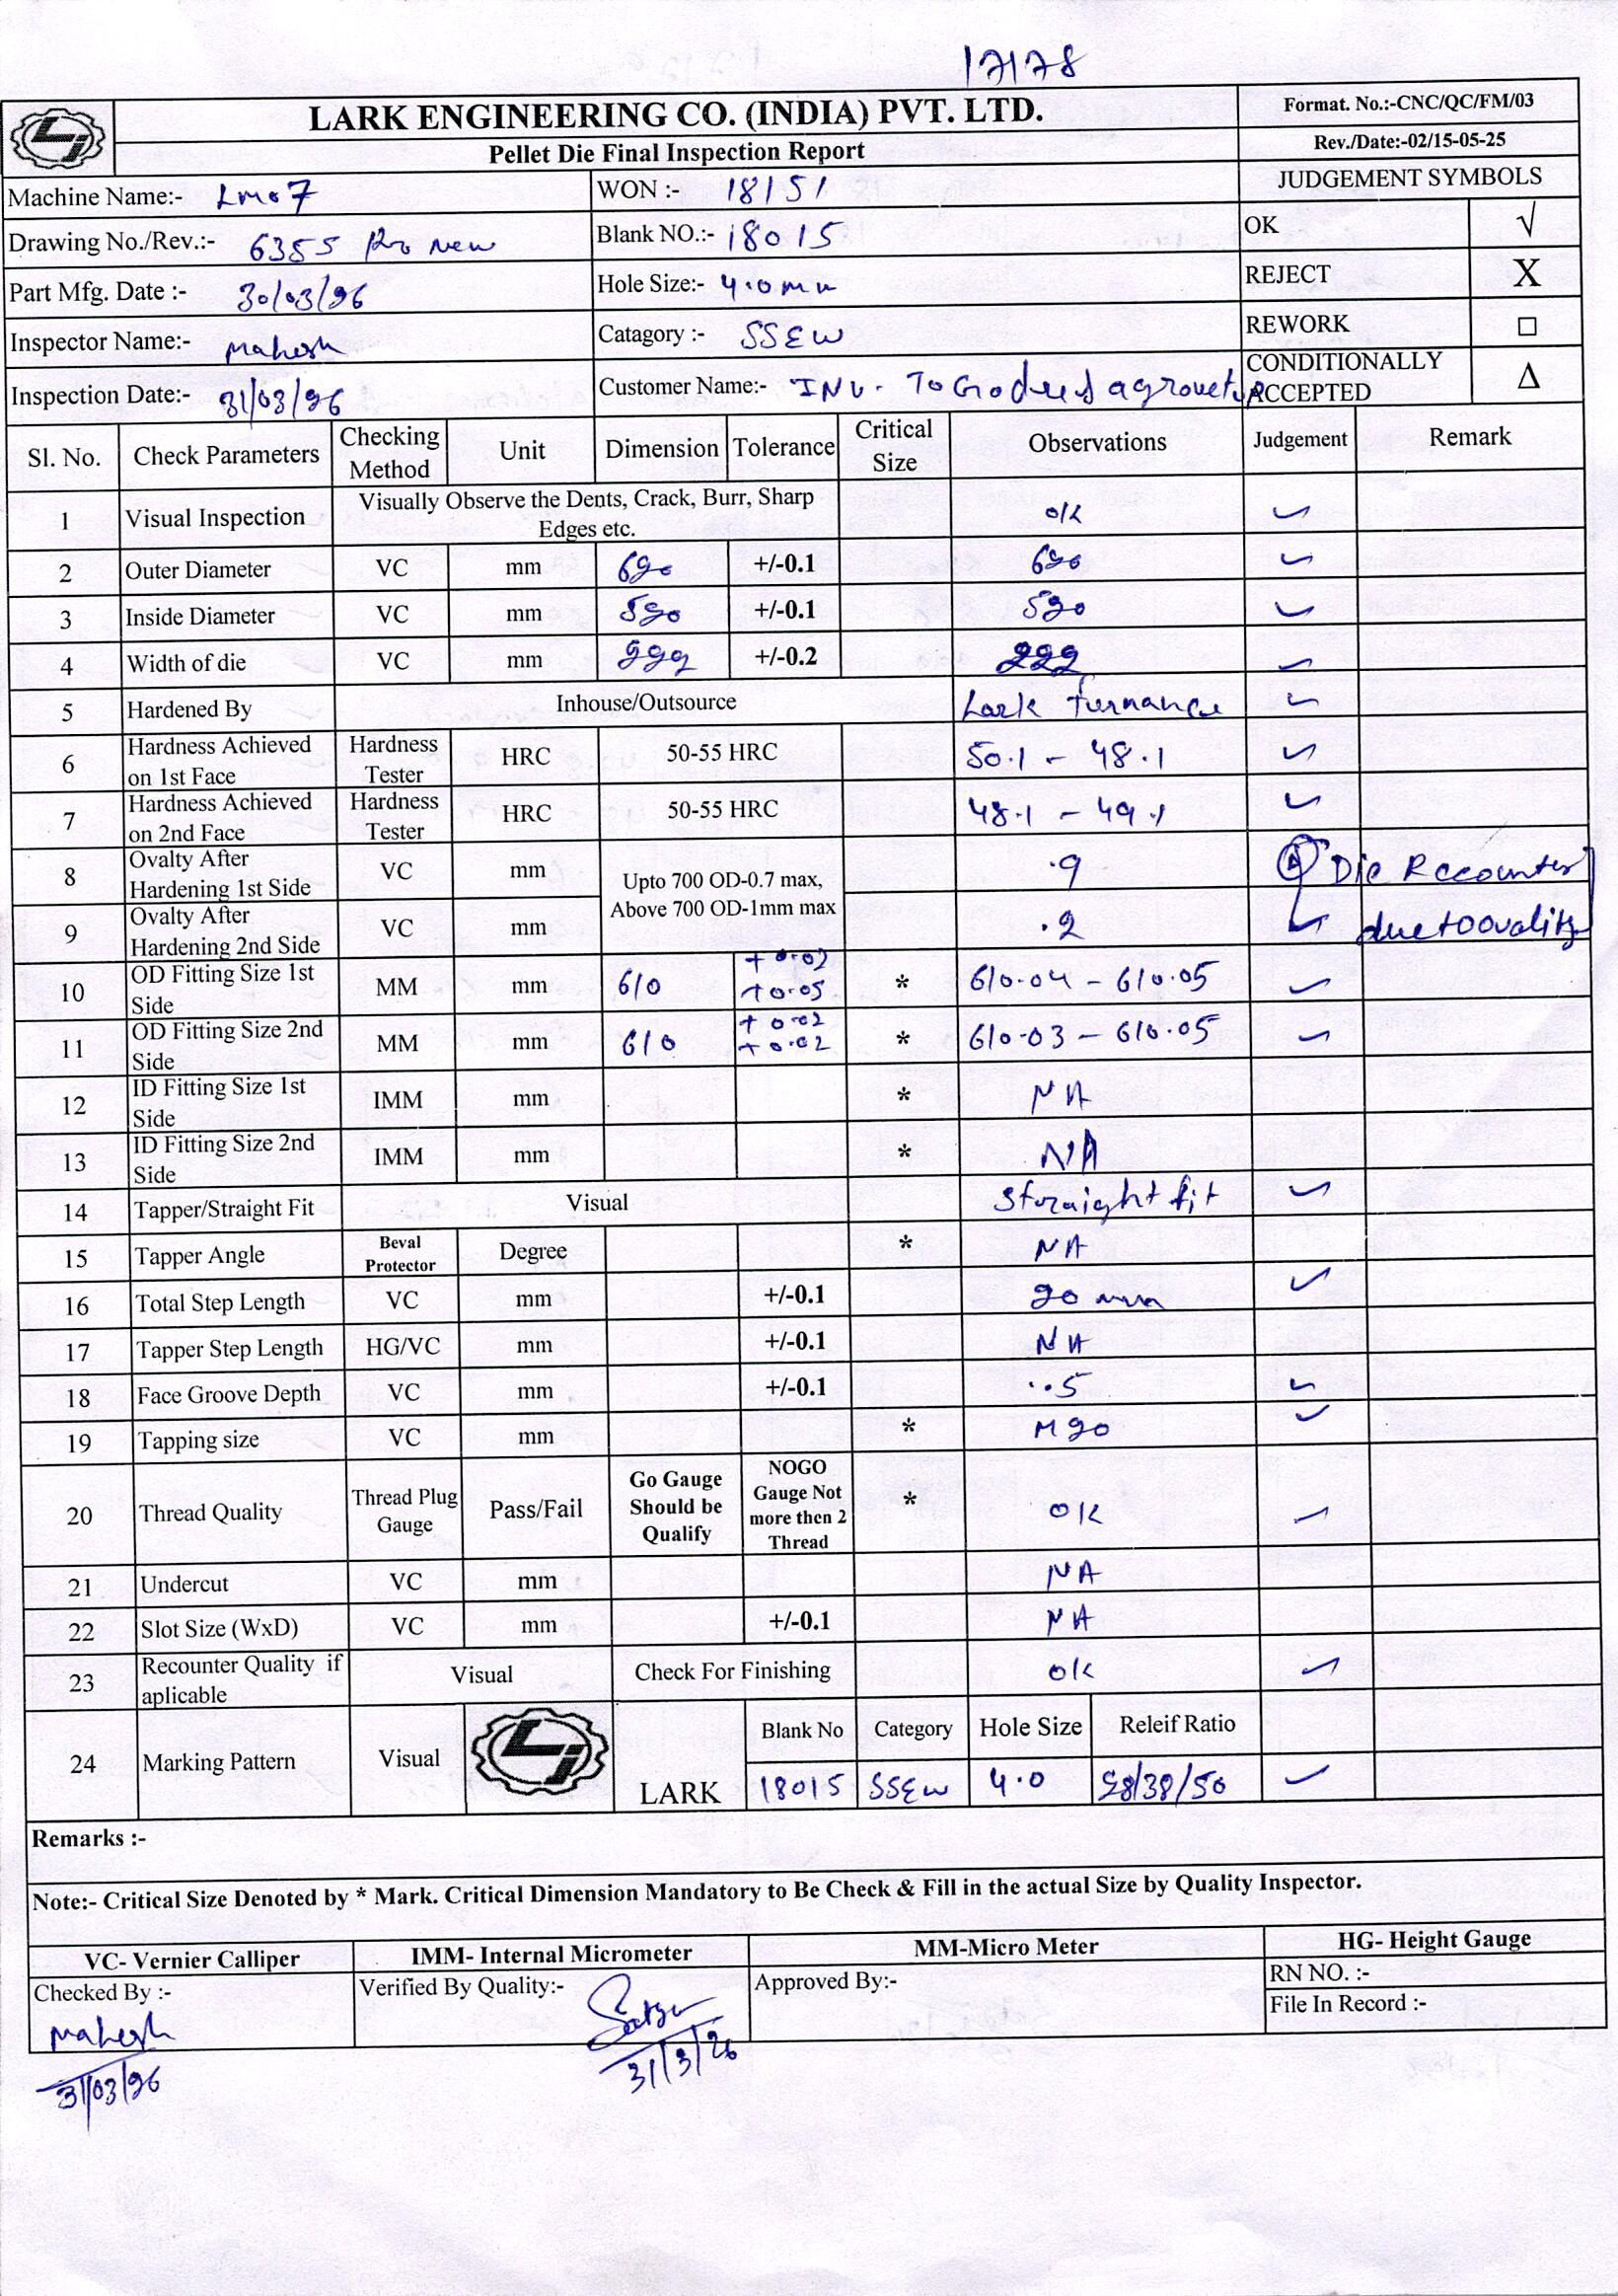 17178
LARK ENGINEERING CO. (INDIA) PVT. LTD.
Format. No.:-CNC/QC/FM/03
Pellet Die Final Inspection Report
Rev./Date:-02/15-05-25
Machine Name:- Lm07
WON :- 18151
JUDGEMENT SYMBOLS
Drawing No./Rev.:- 6355 Pro New
Blank NO.:- 18015
OK √
Part Mfg. Date :- 30/03/26
Hole Size:- 4.0mm
REJECT X
Inspector Name:- Mahesh
Catagory :- SSEW
REWORK □
Inspection Date:- 31/03/26
Customer Name:- INV. To Godrej agrovet
CONDITIONALLY ACCEPTED Δ
Sl. No. Check Parameters Checking Method Unit Dimension Tolerance Critical Size Observations Judgement Remark
1 Visual Inspection Visually Observe the Dents, Crack, Burr, Sharp Edges etc. ok ✓
2 Outer Diameter VC mm 690 +/-0.1 690 ✓
3 Inside Diameter VC mm 520 +/-0.1 520 ✓
4 Width of die VC mm 222 +/-0.2 222 ✓
5 Hardened By Inhouse/Outsource Lark furnance ✓
6 Hardness Achieved on 1st Face Hardness Tester HRC 50-55 HRC 50.1 - 48.1 ✓
7 Hardness Achieved on 2nd Face Hardness Tester HRC 50-55 HRC 48.1 - 49.1 ✓
8 Ovalty After Hardening 1st Side VC mm Upto 700 OD-0.7 max, Above 700 OD-1mm max .9 Δ Die Recounter
9 Ovalty After Hardening 2nd Side VC mm .2 ✓ due to ovality
10 OD Fitting Size 1st Side MM mm 610 +0.02 +0.05 * 610.04 - 610.05 ✓
11 OD Fitting Size 2nd Side MM mm 610 +0.02 +0.02 * 610.03 - 610.05 ✓
12 ID Fitting Size 1st Side IMM mm * NA
13 ID Fitting Size 2nd Side IMM mm * NA
14 Tapper/Straight Fit Visual Straight fit ✓
15 Tapper Angle Beval Protector Degree * NA
16 Total Step Length VC mm +/-0.1 20 mm ✓
17 Tapper Step Length HG/VC mm +/-0.1 NA
18 Face Groove Depth VC mm +/-0.1 .5 ✓
19 Tapping size VC mm * M20 ✓
20 Thread Quality Thread Plug Gauge Pass/Fail Go Gauge Should be Qualify NOGO Gauge Not more then 2 Thread * OK ✓
21 Undercut VC mm NA
22 Slot Size (WxD) VC mm +/-0.1 NA
23 Recounter Quality if aplicable Visual Check For Finishing ok ✓
24 Marking Pattern Visual LARK Blank No Category Hole Size Releif Ratio
18015 SSEW 4.0 28/38/50 ✓
Remarks :-
Note:- Critical Size Denoted by * Mark. Critical Dimension Mandatory to Be Check & Fill in the actual Size by Quality Inspector.
VC- Vernier Calliper IMM- Internal Micrometer MM-Micro Meter HG- Height Gauge
Checked By :- Verified By Quality:- Approved By:- RN NO. :-
File In Record :-
Mahesh
31/03/26 31/3/26